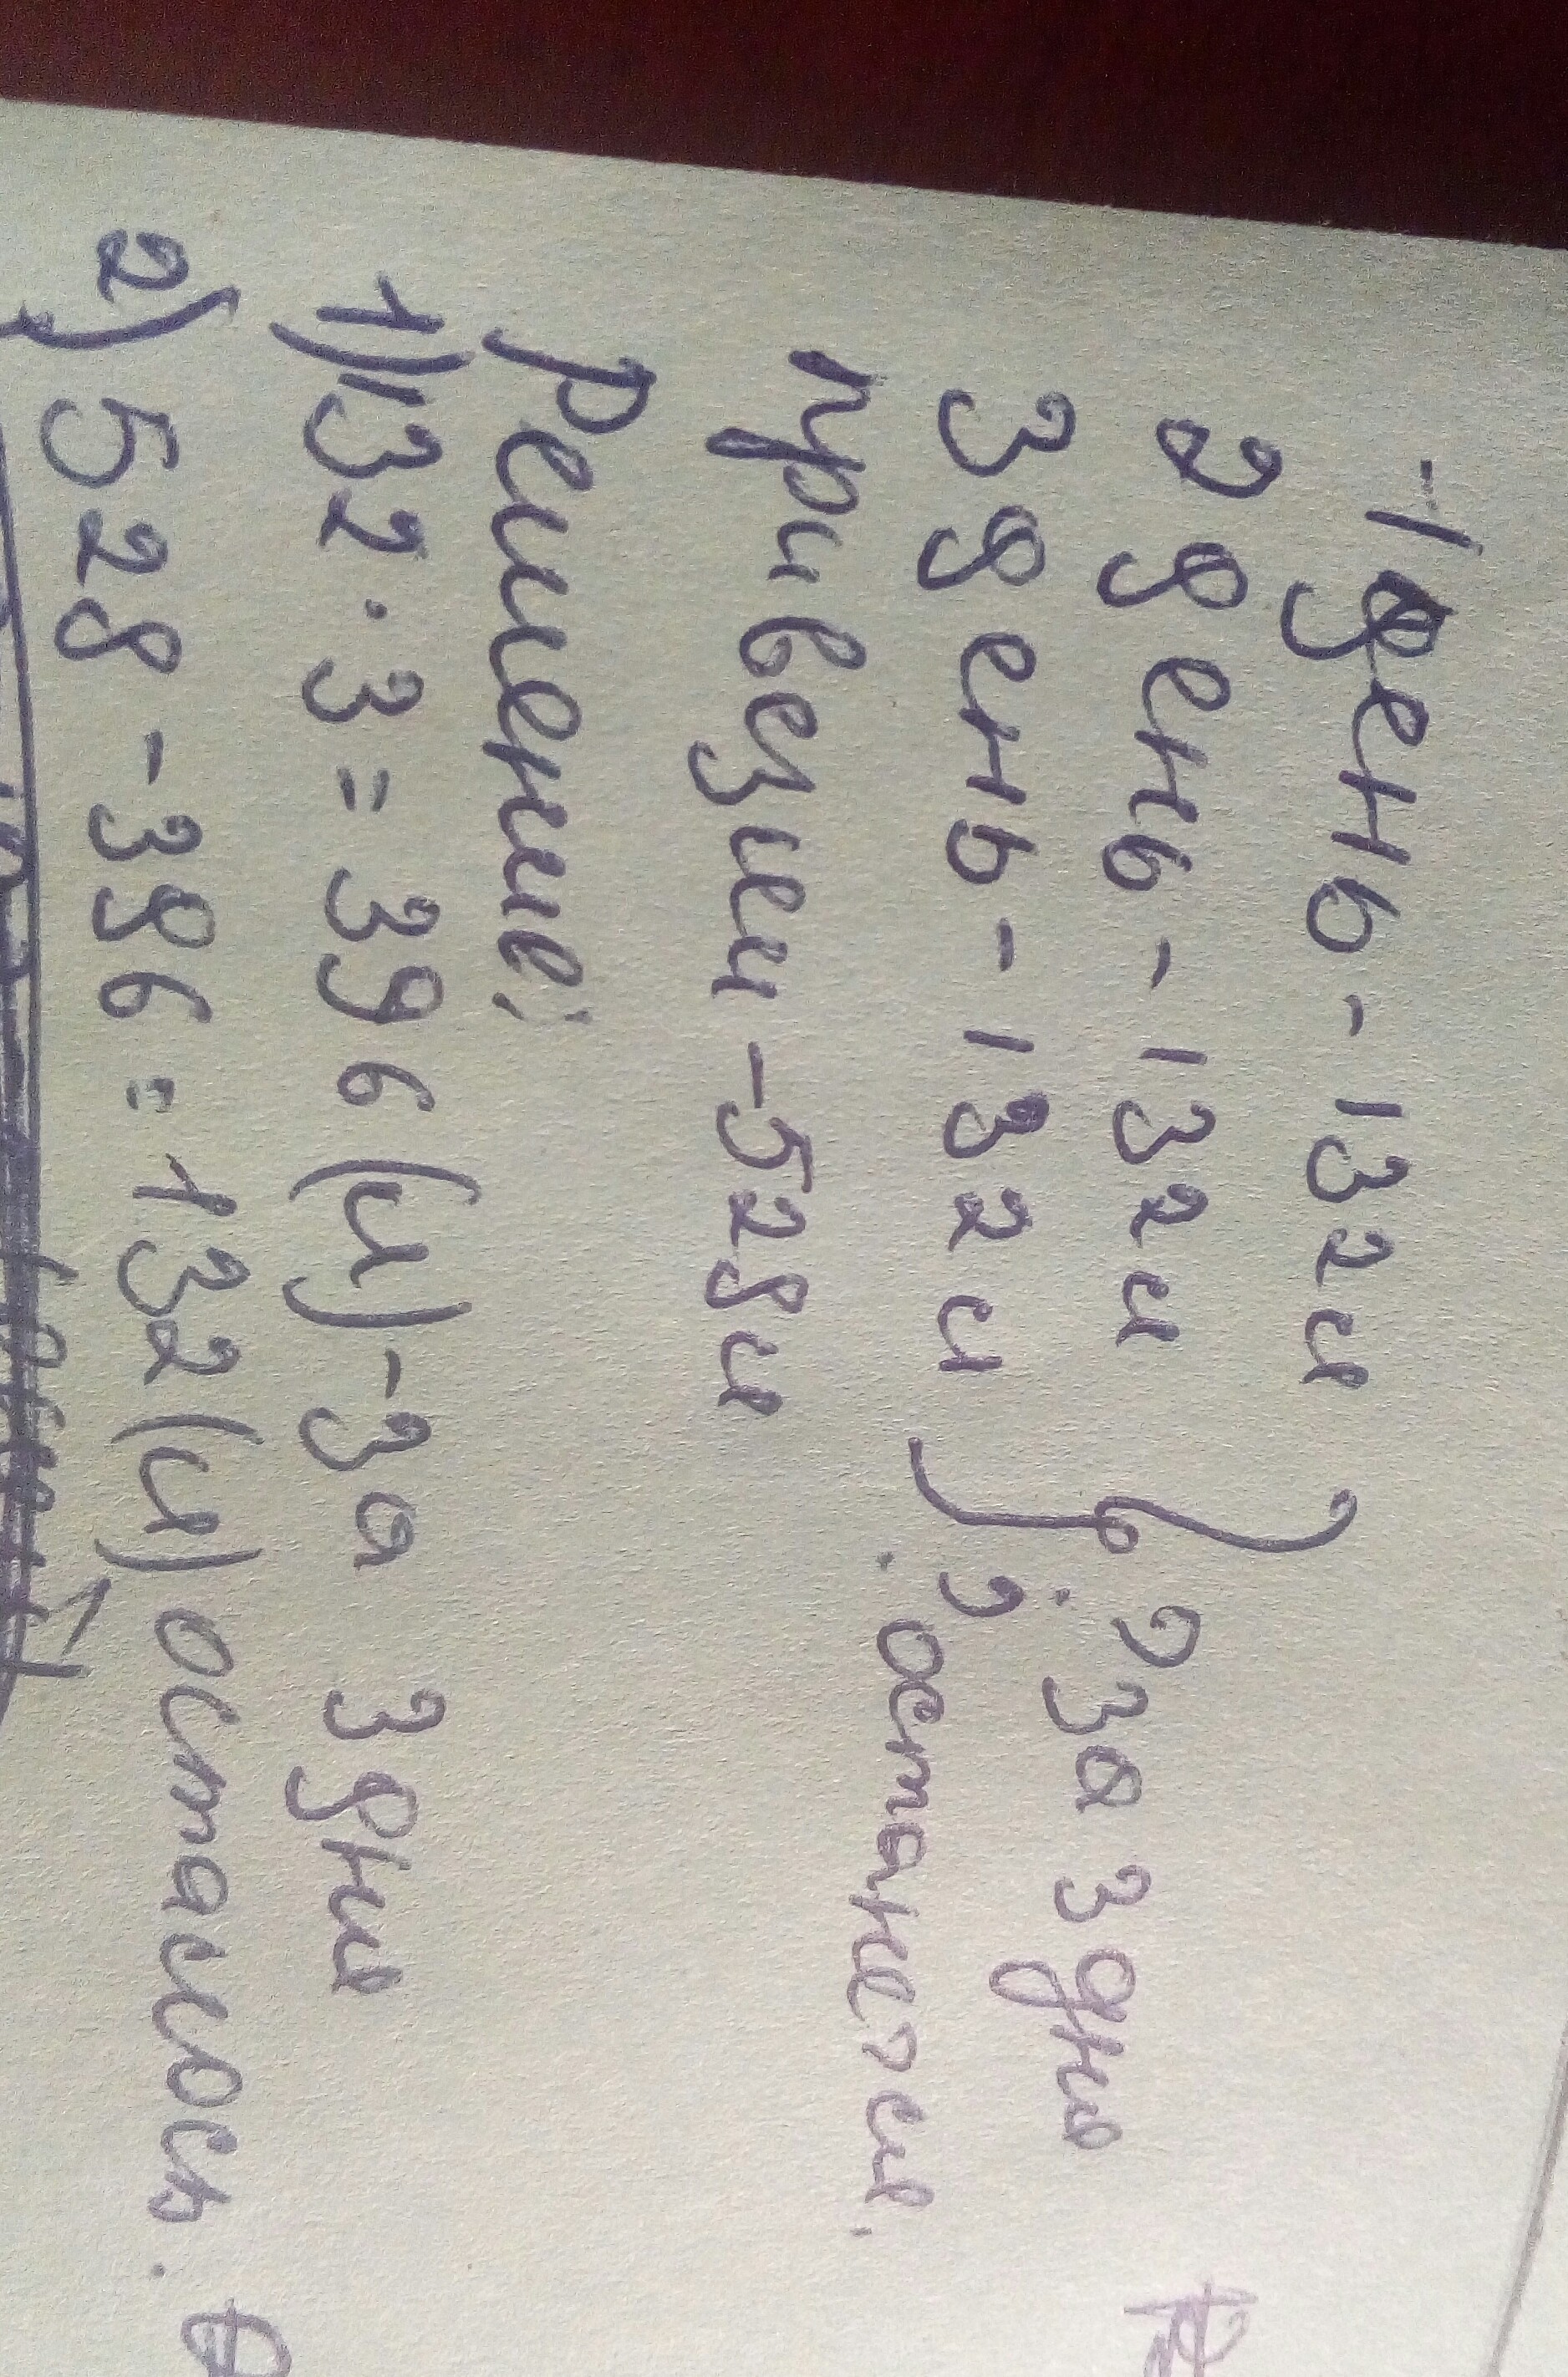 1 день - 132и
2 день - 132и } ? за 3 дня
3 день - 132и ? останется.
привезли - 528и
Решение:
1) 132 · 3 = 396 (и) - за 3 дня
2) 528 - 396 = 132 (и) осталось.